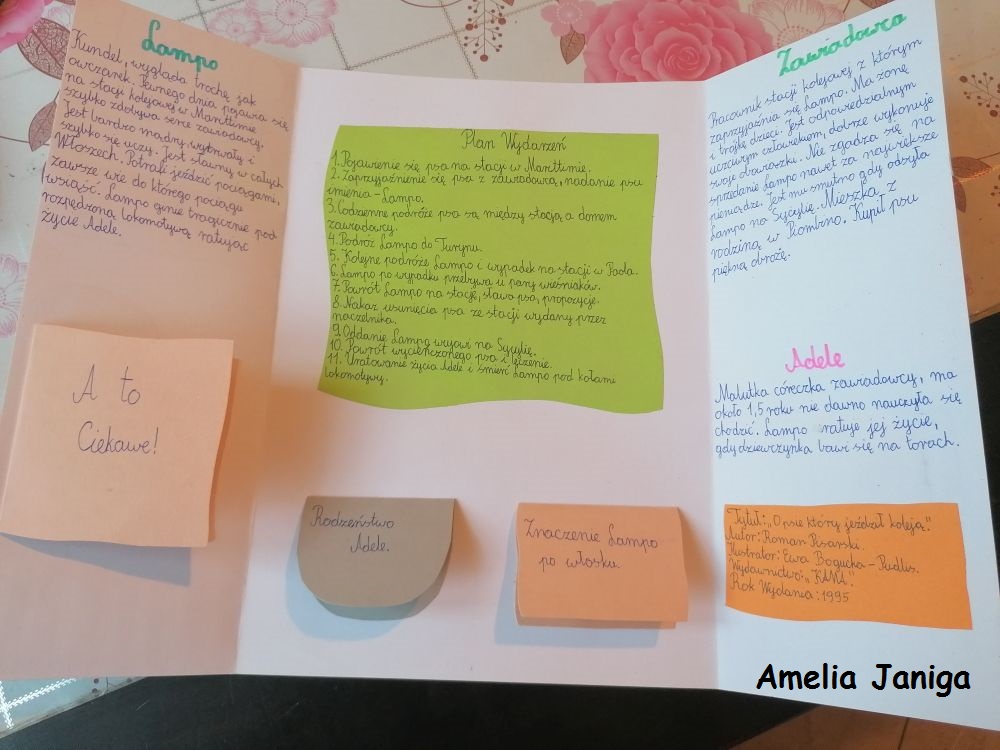 Lampo
Kundel, wygląda trochę jak
owczarek. Pewnego dnia pojawia się
na stacji kolejowej w Marittimie
szybko zdobywa serce zawiadowcy.
Jest bardzo mądry, wytrwały i
szybko się uczy. Jest sławny w całych
Włoszech. Potrafi jeździć pociągami,
zawsze wie do którego pociągu
wsiąść. Lampo ginie tragicznie pod
rozpędzoną lokomotywą ratując
życie Adele.
A to
Ciekawe!
Plan Wydarzeń
1. Pojawienie się psa na stacji w Marittimie.
2. Zaprzyjaźnienie się psa z zawiadowcą, nadanie psu
imienia - Lampo.
3. Codzienne podróże psa są między stacją a domem
zawiadowcy.
4. Podróż Lampo do Turynu.
5. Kolejne podróże Lampo i wypadek na stacji w Paola.
6. Lampo po wypadku przebywa u pary wieśniaków.
7. Powrót Lampo na stację, sława psa, propozycje.
8. Nakaz usunięcia psa ze stacji wydany przez
naczelnika.
9. Oddanie Lampo wujowi na Sycylię.
10. Powrót wycieńczonego psa i leczenie.
11. Uratowanie życia Adele i śmierć Lampo pod kołami
lokomotywy.
Rodzeństwo
Adele.
Znaczenie Lampo
po włosku.
Zawiadowca
Pracownik stacji kolejowej z którym
zaprzyjaźnia się Lampo. Ma żonę
i trójkę dzieci. Jest odpowiedzialnym
uczciwym człowiekiem, dobrze wykonuje
swoje obowiązki. Nie zgadza się na
sprzedanie Lampo nawet za największe
pieniądze. Jest mu smutno gdy odsyła
Lampo na Sycylię. Mieszka z
rodziną w Piombino. Kupił psu
piękną obrożę.
Adele
Malutka córeczka zawiadowcy, ma
około 1,5 roku nie dawno nauczyła się
chodzić. Lampo ratuje jej życie,
gdy dziewczynka bawi się na torach.
Tytuł: „O psie który jeździł koleją."
Autor: Roman Pisarski.
Ilustrator: Ewa Bogucka - Pudlis.
Wydawnictwo: „KAMA".
Rok Wydania: 1995
Amelia Janiga